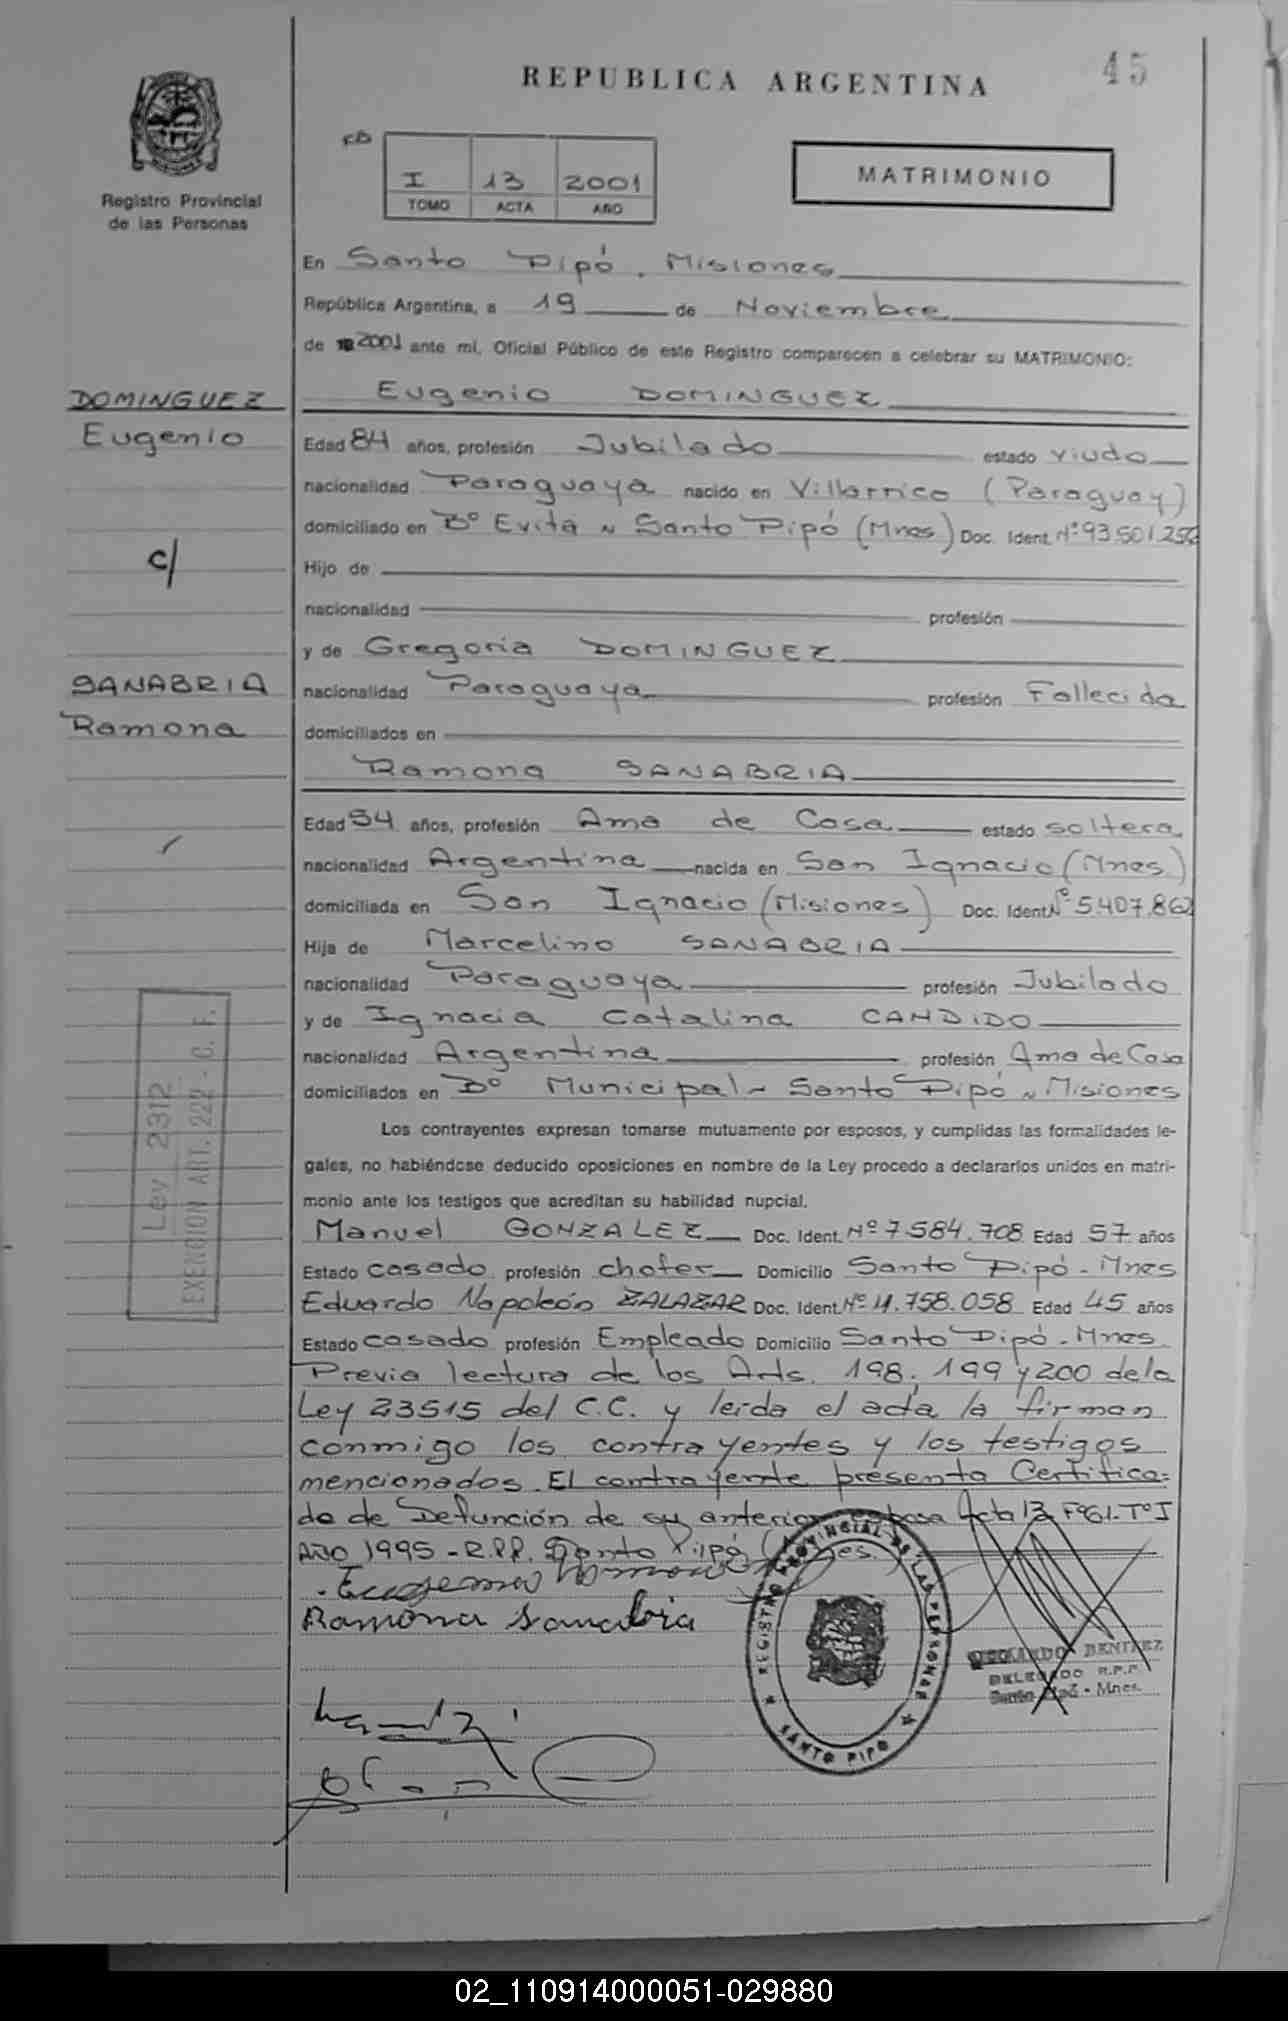 45
REPUBLICA ARGENTINA
Registro Provincial
de las Personas
I 13 2001
TOMO ACTA AÑO
MATRIMONIO
En Santo Pipó, Misiones
República Argentina, a 19 de Noviembre
de 2001 ante mi, Oficial Público de este Registro comparecen a celebrar su MATRIMONIO:
DOMINGUEZ
Eugenio
c/
SANABRIA
Ramona
Eugenio DOMINGUEZ
Edad 84 años, profesión Jubilado estado viudo
nacionalidad Paraguaya nacido en Villarrica (Paraguay)
domiciliado en Bº Evita ~ Santo Pipó (Mnes) Doc. Ident. Nº 93.501.256
Hijo de
nacionalidad profesión
y de Gregoria DOMINGUEZ
nacionalidad Paraguaya profesión Fallecida
domiciliados en
Ramona SANABRIA
Edad 54 años, profesión Ama de Casa estado soltera
nacionalidad Argentina nacida en San Ignacio (Mnes)
domiciliada en San Ignacio (Misiones) Doc. Ident. Nº 5.407.862
Hija de Marcelino SANABRIA
nacionalidad Paraguaya profesión Jubilado
y de Ignacia Catalina CANDIDO
nacionalidad Argentina profesión Ama de Casa
domiciliados en Bº Municipal - Santo Pipó ~ Misiones
Los contrayentes expresan tomarse mutuamente por esposos, y cumplidas las formalidades le-
gales, no habiéndose deducido oposiciones en nombre de la Ley procedo a declararlos unidos en matri-
monio ante los testigos que acreditan su habilidad nupcial.
Manuel GONZALEZ Doc. Ident. Nº 7.584.708 Edad 57 años
Estado casado profesión chofer Domicilio Santo Pipó - Mnes
Eduardo Napoleón ZALAZAR Doc. Ident. Nº 11.758.058 Edad 45 años
Estado casado profesión Empleado Domicilio Santo Pipó - Mnes
Previa lectura de los Arts. 198, 199 y 200 de la
Ley 23515 del C.C. y leída el acta la firman
conmigo los contrayentes y los testigos
mencionados. El contrayente presenta Certifica-
do de Defunción de su anterior esposa Acta 13 Fº61-TºI
Año 1995 - R.P.P. Santo Pipó (Mnes).
Ley 2312
EXENCION ART. 222 - C. F.
Eugenio
Ramona Sanabria
REGISTRO PROVINCIAL DE LAS PERSONAS
SANTO PIPO
BENITEZ
DELEGADO R.P.P.
Santo Pipó - Mnes.
02_110914000051-029880